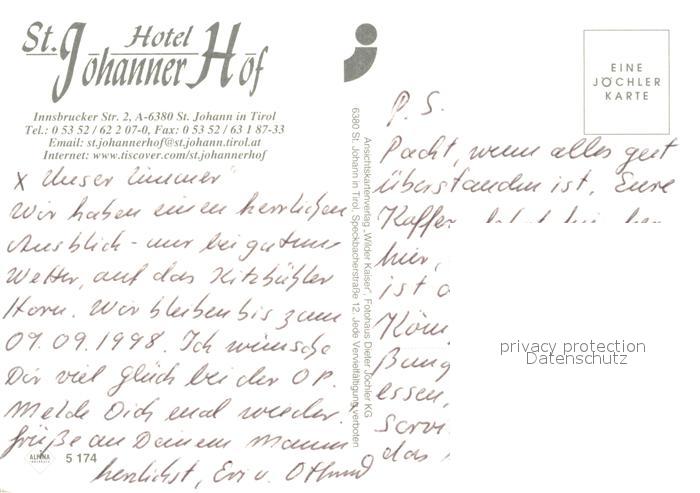 St. Johanner Hof
Hotel
Innsbrucker Str. 2, A-6380 St. Johann in Tirol
Tel.: 0 53 52 / 62 2 07-0, Fax: 0 53 52 / 63 1 87-33
Email: st.johannerhof@st.johann.tirol.at
Internet: www.tiscover.com/st.johannerhof
x "Unser Zimmer"
Wir haben einen herrlichen
Ausblick - nur bei gutem
Wetter, auf das Kitzbühler
Horn. Wir bleiben bis zum
09.09.1998. Ich wünsche
Dir viel Glück bei der OP.
Melde Dich mal wieder!
Grüße an Deinem Mann
herzlichst, Evi u.
ALPINA
5 174
Ansichtskartenverlag „Wilder Kaiser", Fotohaus Dieter Jöchler KG
6380 St. Johann in Tirol, Speckbacherstraße 12. Jede Vervielfältigung verboten
EINE
JÖCHLER
KARTE
P.S.
Packt, wenn alles gut
überstanden ist, Eure
Koffer
hier,
ist
essen,
das
privacy protection
Datenschutz